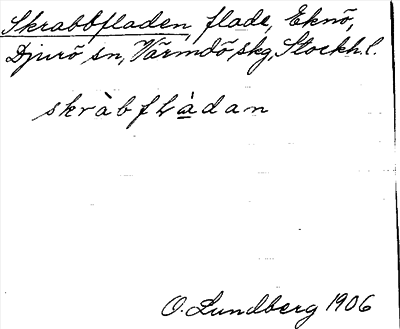 Skrabbfladen, flade, Eknö,
Djurö sn, Värmdö skg, Stockh. l.
skràbflàdan
O. Lundberg 1906